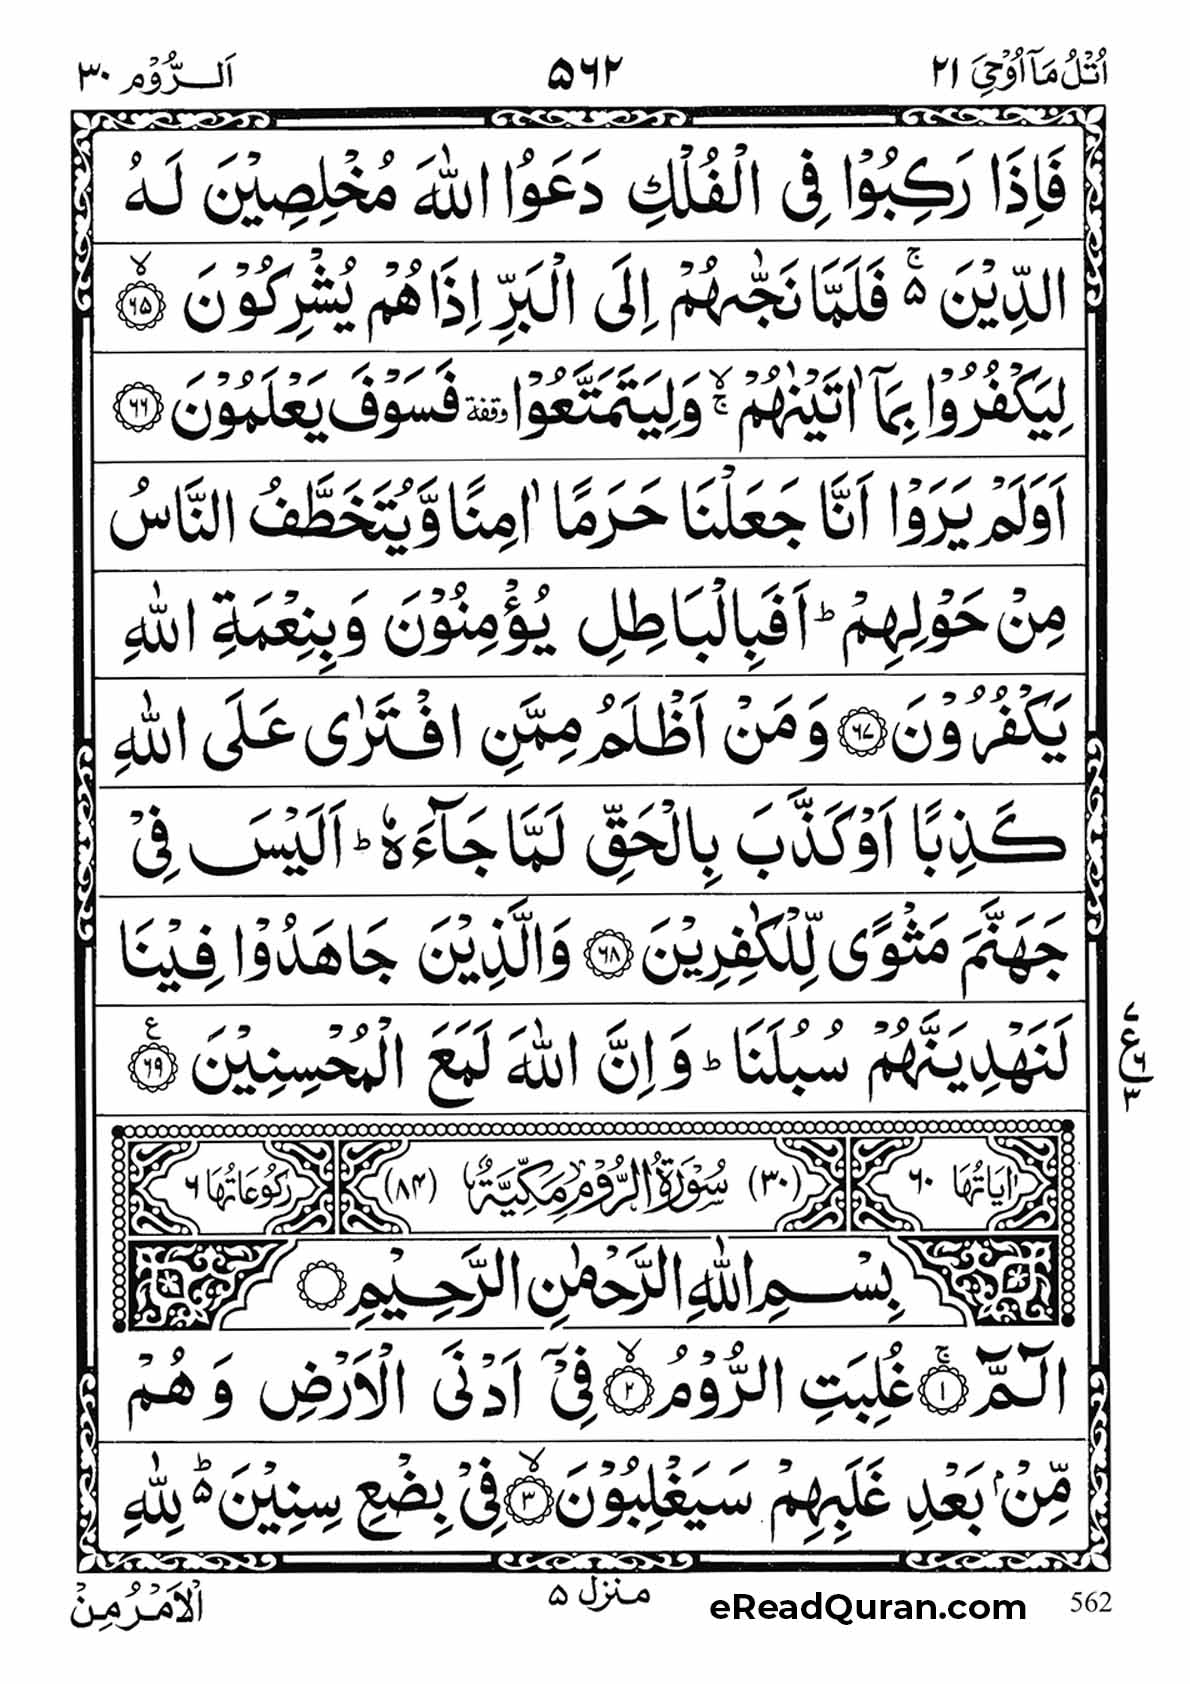 اُتْلُ مَآ اُوْحِیَ ۲۱
۵۶۲
اَلــرُّوْم ۳۰
فَاِذَا رَكِبُوْا فِی الْفُلْكِ دَعَوُا اللّٰهَ مُخْلِصِیْنَ لَهُ
الدِّیْنَ ۚ۬ فَلَمَّا نَجّٰىهُمْ اِلَی الْبَرِّ اِذَا هُمْ یُشْرِكُوْنَ ۙ﴿۶۵﴾
لِیَكْفُرُوْا بِمَاۤ اٰتَیْنٰهُمْ ۚۙ وَلِیَتَمَتَّعُوْا وقفة فَسَوْفَ یَعْلَمُوْنَ ﴿۶۶﴾
اَوَلَمْ یَرَوْا اَنَّا جَعَلْنَا حَرَمًا اٰمِنًا وَّیُتَخَطَّفُ النَّاسُ
مِنْ حَوْلِهِمْ ؕ اَفَبِالْبَاطِلِ یُؤْمِنُوْنَ وَبِنِعْمَةِ اللّٰهِ
یَكْفُرُوْنَ ﴿۶۷﴾ وَمَنْ اَظْلَمُ مِمَّنِ افْتَرٰی عَلَی اللّٰهِ
كَذِبًا اَوْ كَذَّبَ بِالْحَقِّ لَمَّا جَآءَهٗ ؕ اَلَیْسَ فِیْ
جَهَنَّمَ مَثْوًی لِّلْكٰفِرِیْنَ ﴿۶۸﴾ وَالَّذِیْنَ جَاهَدُوْا فِیْنَا
لَنَهْدِیَنَّهُمْ سُبُلَنَا ؕ وَاِنَّ اللّٰهَ لَمَعَ الْمُحْسِنِیْنَ ﴿۶۹﴾ ع
۷
ع ۶
۳
اٰیَاتُهَا ۶۰
(۳۰) سُوْرَةُ الرُّوْمِ مَكِّیَّةٌ (۸۴)
رُكُوْعَاتُهَا ۶
بِسْمِ اللّٰهِ الرَّحْمٰنِ الرَّحِیْمِ
الٓمّٓ ۚ﴿۱﴾ غُلِبَتِ الرُّوْمُ ۙ﴿۲﴾ فِیْۤ اَدْنَی الْاَرْضِ وَهُمْ
مِّنْۢ بَعْدِ غَلَبِهِمْ سَیَغْلِبُوْنَ ۙ﴿۳﴾ فِیْ بِضْعِ سِنِیْنَ ۬ؕ لِلّٰهِ
الْاَمْرُ مِنْ
منزل ۵
eReadQuran.com
562